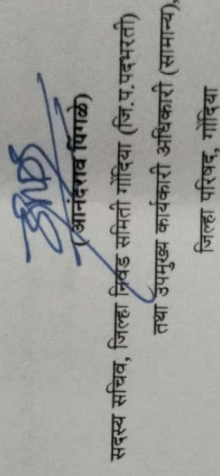 (आनंदराव पिंगळे)
सदस्य सचिव, जिल्हा निवड समिती गोंदिया (जि.प.पदभरती)
तथा उपमुख्य कार्यकारी अधिकारी (सामान्य),
जिल्हा परिषद, गोंदिया